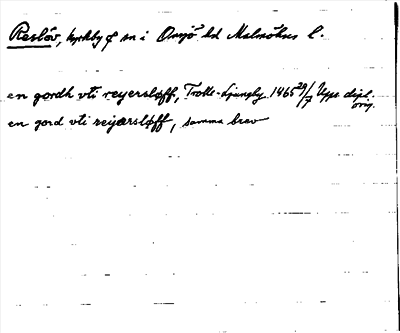 Reslöv, kyrkby o sn i Onsjö hd Malmöhus l.
en gordh vti reyersløff, Trolle-Ljungby 1465 29/7 Upps dipl. orig.
en gord vti reyersløff, samma brev